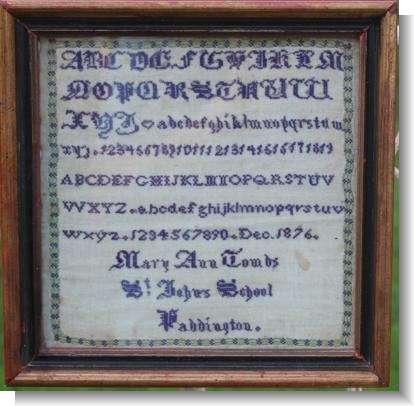 ABCDEFGHIJKLM
NOPQRSTUVW
XYZ abcdefghijklmnopqrstuw
xyz. 12345678910111213141516171819
ABCDEFGHIJKLMNOPQRSTUV
WXYZ. abcdefghijklmnopqrstuvw
wxyz. 1234567890. Dec. 1876.
Mary Ann Tombs
St. John's School
Paddington.